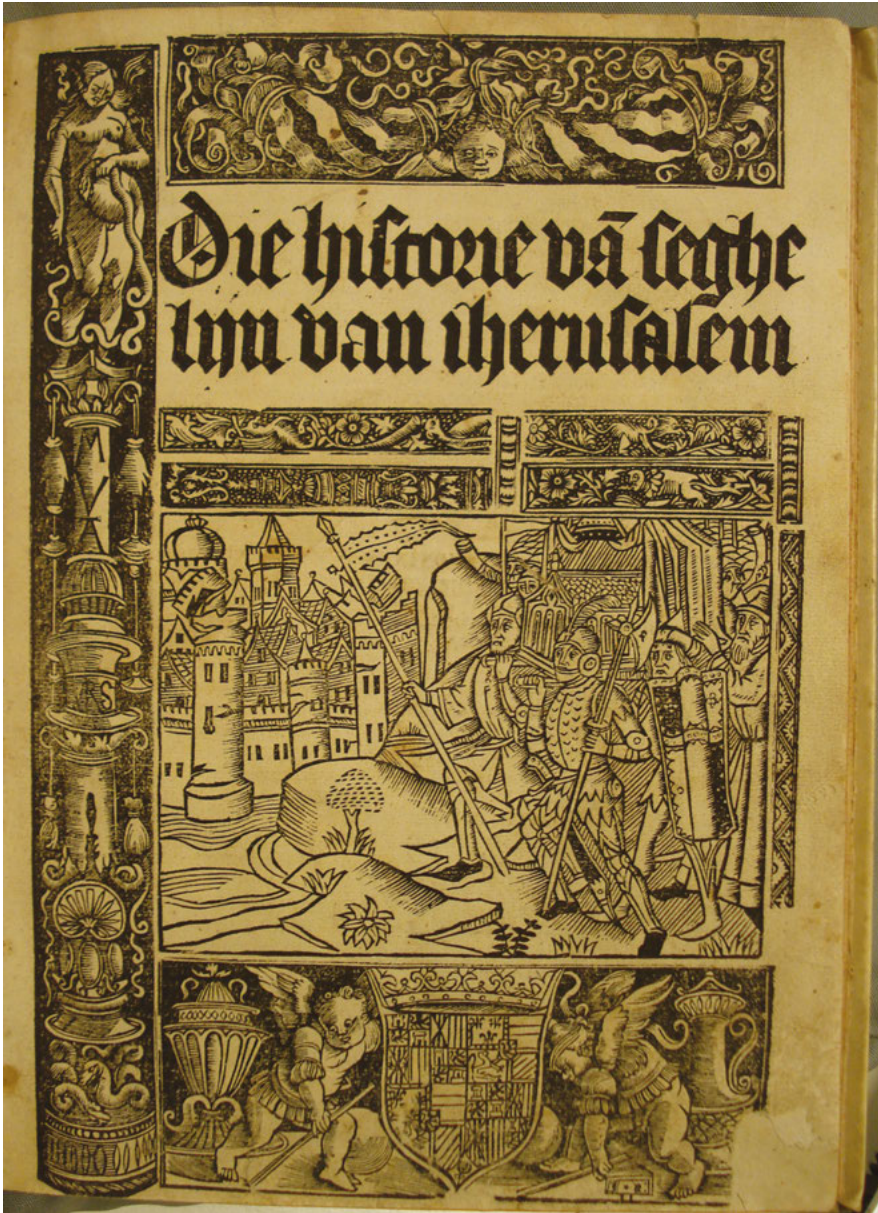 Die historie vā seghe
lijn van iherusalem
M
V
T
A
S